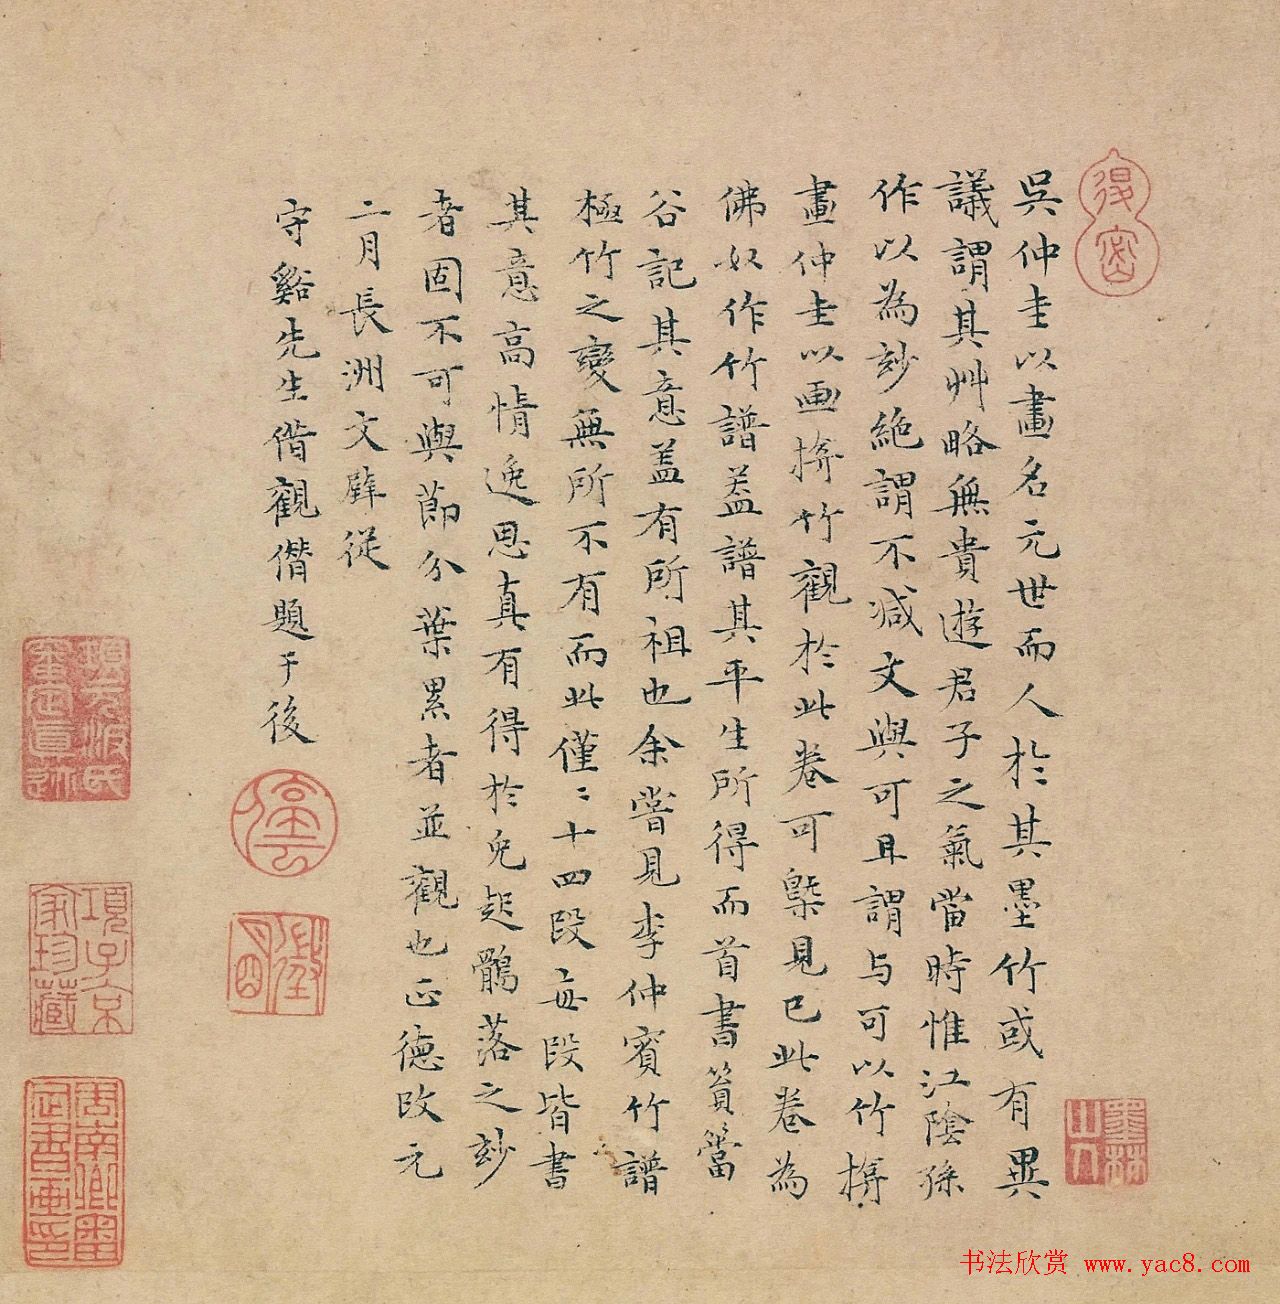 吳仲圭以畫名元世而人於其墨竹或有異
議謂其艸略無貴遊君子之氣當時惟江陰孫
作以為玅絶謂不減文與可且謂与可以竹掩
畫仲圭以画掩竹觀於此卷可槩見已此卷為
佛奴作竹譜葢譜其平生所得而首書篔簹
谷記其意盖有所祖也余嘗見李仲賓竹譜
極竹之變無所不有而此僅〻十四段每段皆書
其意高情逸思真有得於兔起鶻落之玅
者固不可與節分葉累者並觀也正德改元
二月長洲文璧從
守谿先生借觀僭題于後
得密
墨林山人
停雲
項元汴氏審定真跡
項子京家珍藏
書法欣赏 www.yac8.com